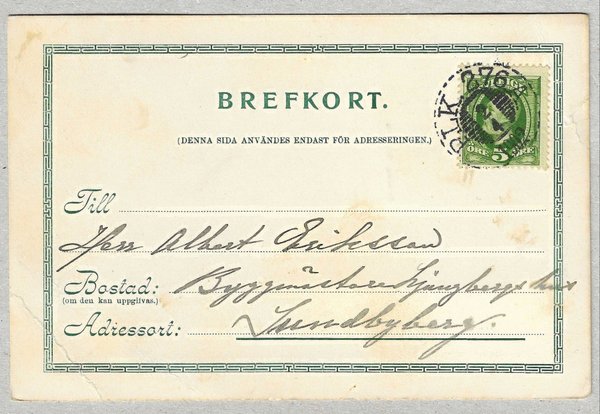 BREFKORT.
(DENNA SIDA ANVÄNDES ENDAST FÖR ADRESSERINGEN.)
PLK 276
ÖRE 5 ÖRE
Till
Herr Albert Eriksson
Bostad: Byggmästare Ljungbergs hus
(om den kan uppgifvas.)
Adressort: Sundbyberg.